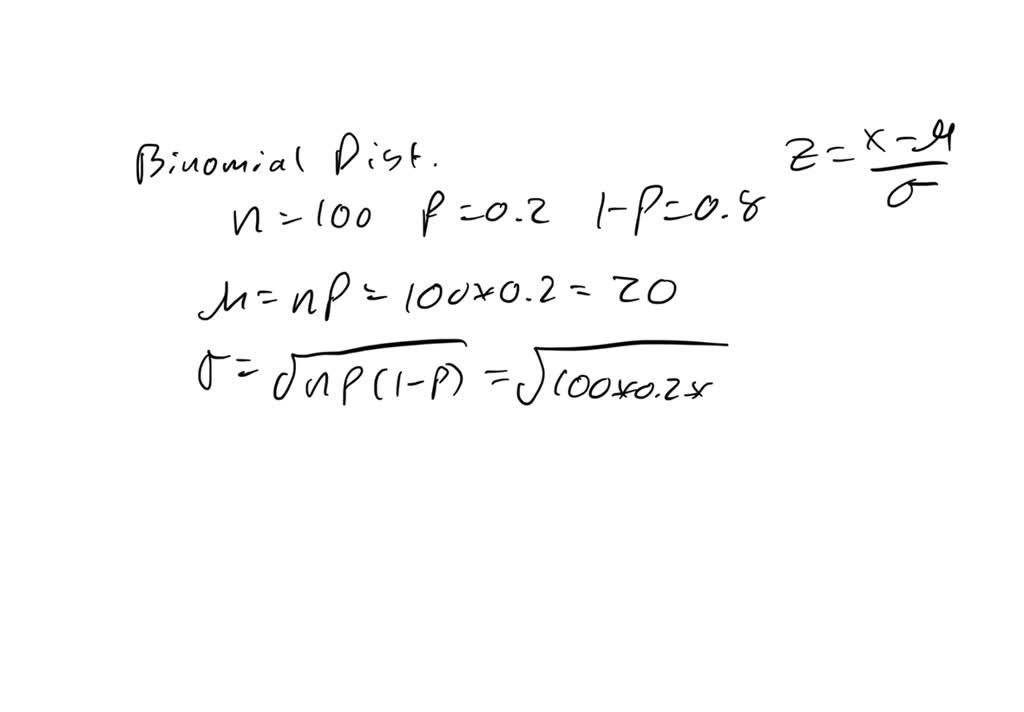 Binomial Dist.
z = (x - μ) / σ
n = 100 P = 0.2 1-P = 0.8
μ = nP = 100*0.2 = 20
σ = √(nP(1-P)) = √(100*0.2*